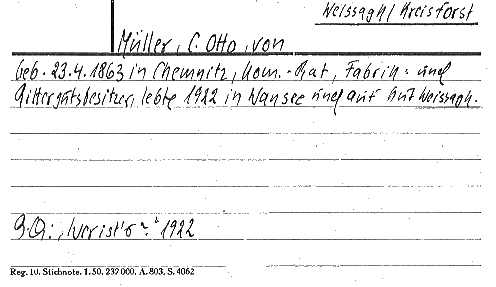 Weissagk/Kreis Forst
Müller, C. Otto, von
geb. 23.4.1863 in Chemnitz, Kom.-Rat, Fabrik- und
Rittergutsbesitzer, lebte 1922 in Wansee und auf Gut Weissagk.
Q: „Wer ist's" 1922
Reg. 10. Stichnote. 1. 50. 232000. A. 803. S. 4062